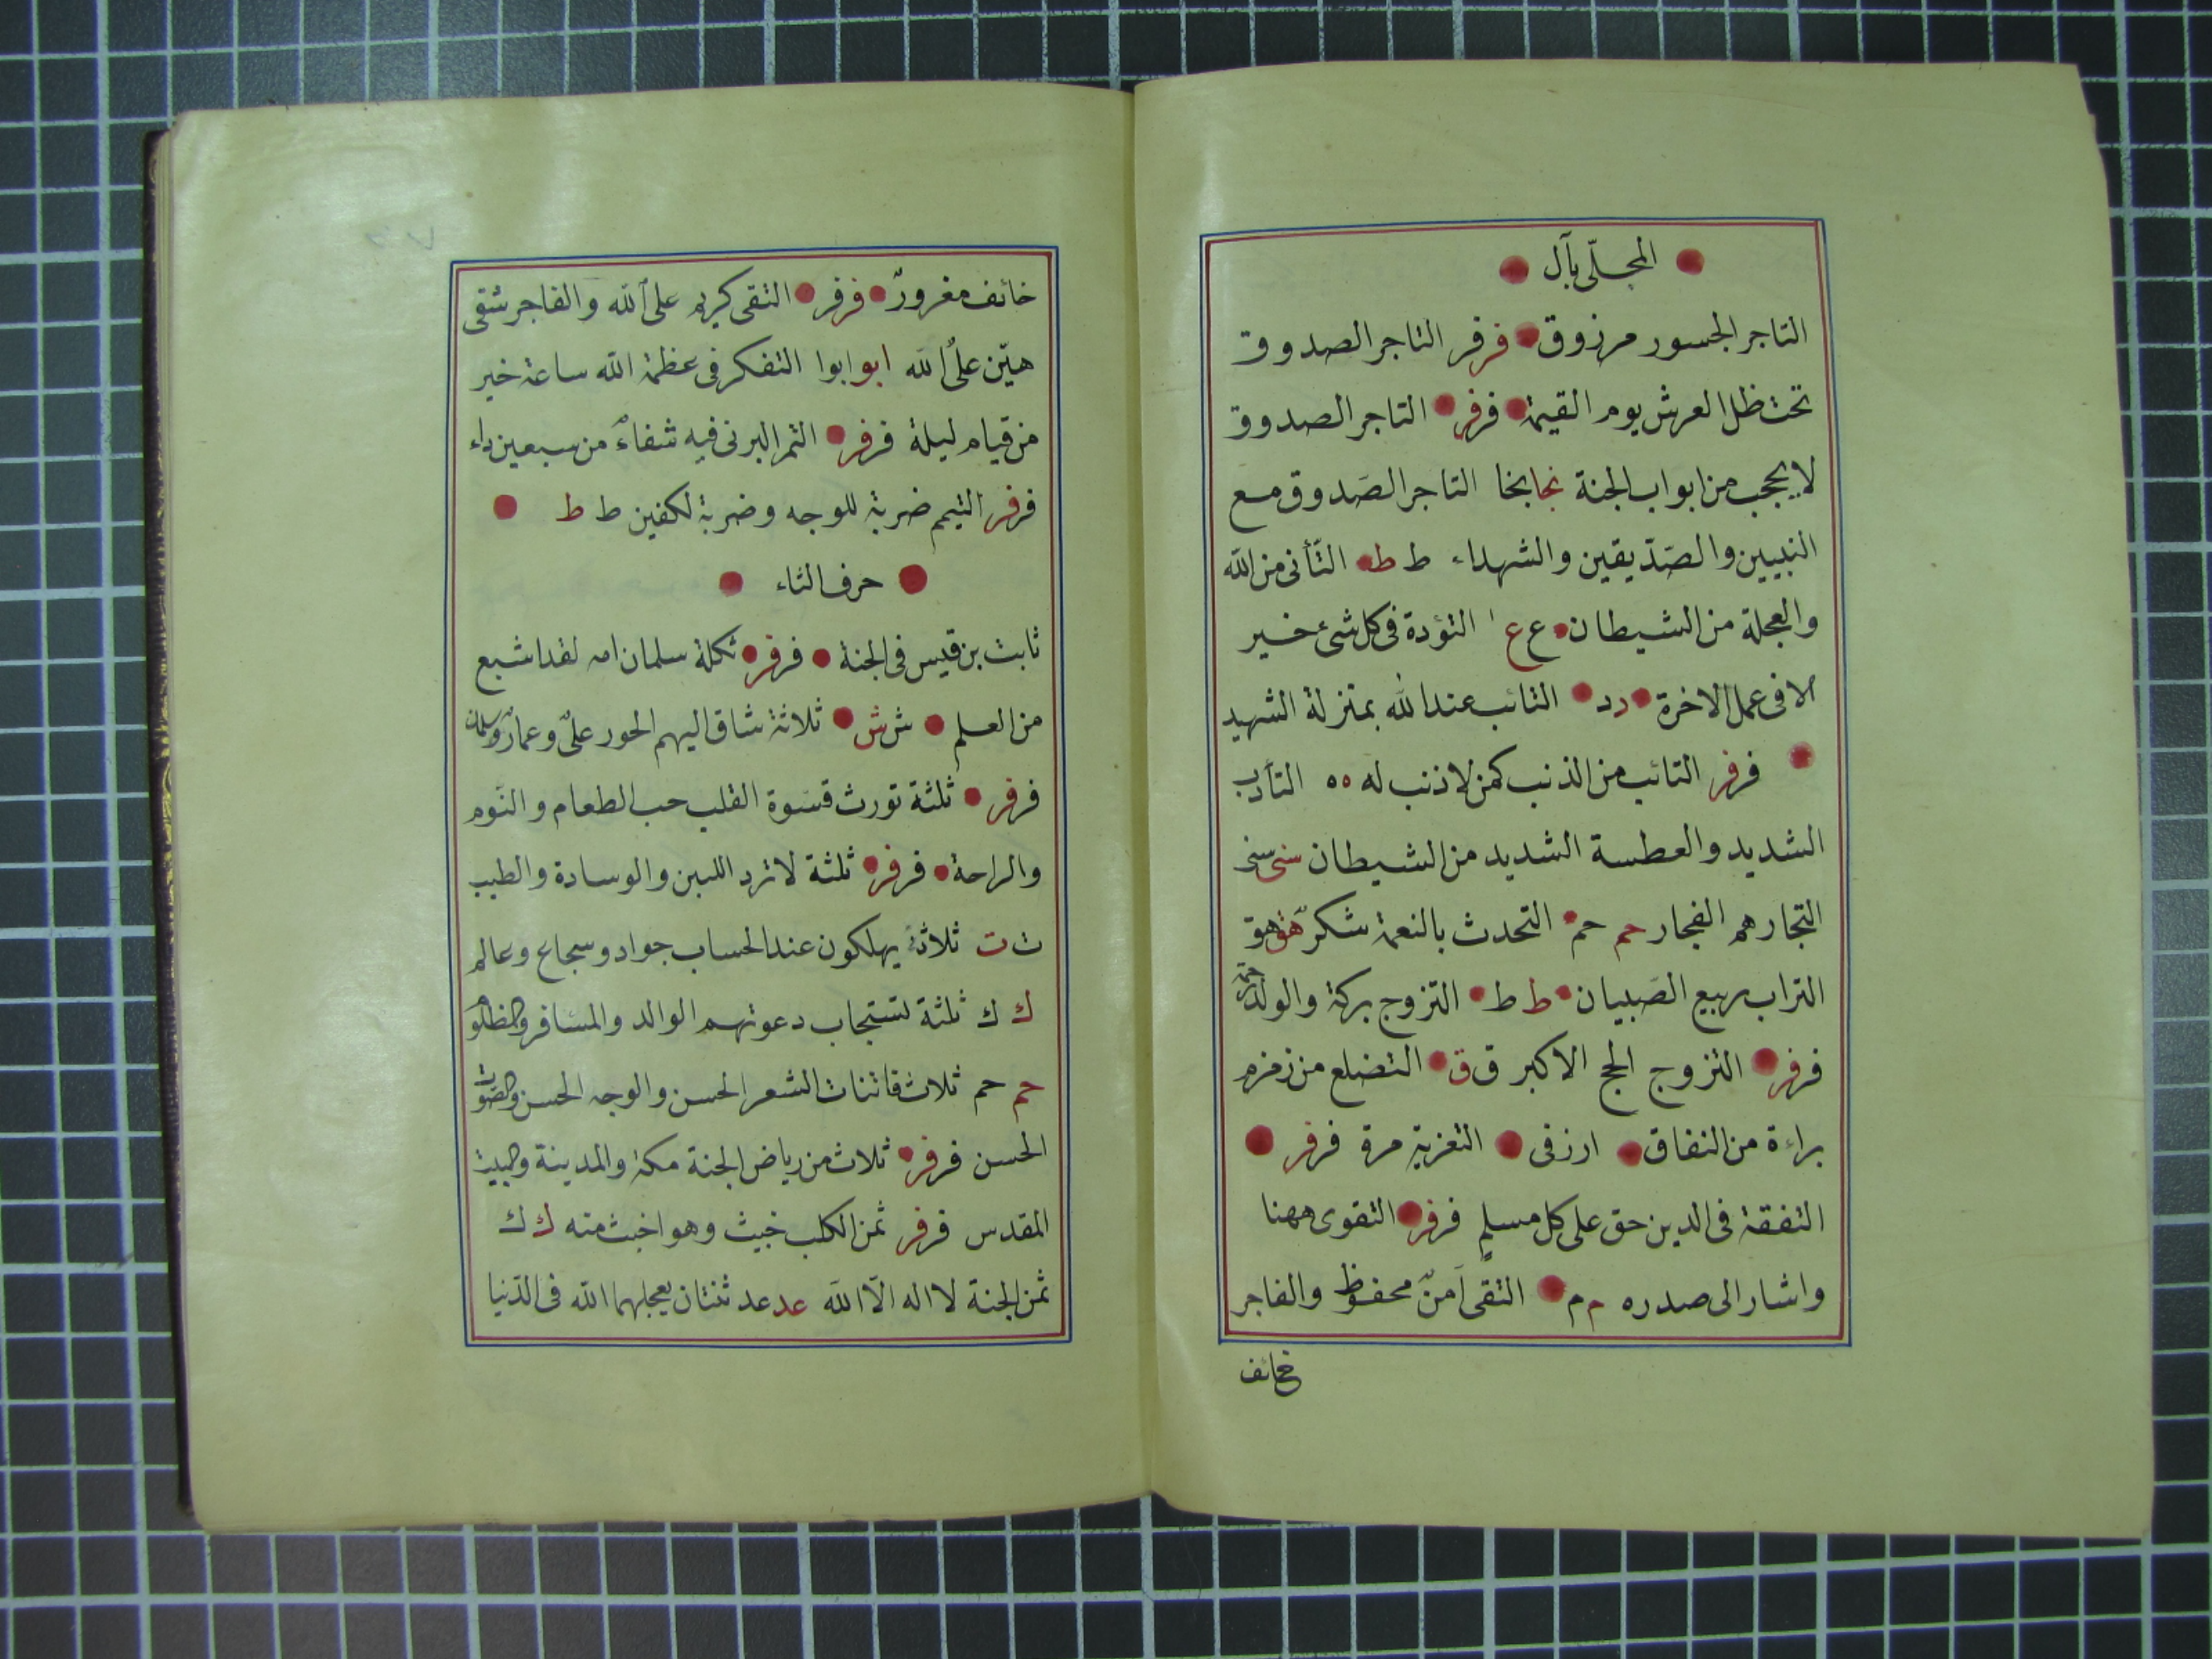 المجلّى بآل
التاجر الجسور مرزوق فرفر التاجر الصدوق
تحت ظل العرش يوم القيمة فرفر التاجر الصدوق
لا يحجب من ابواب الجنة نجا بخا التاجر الصَدوق مع
النبيين والصَدّيقين والشهداء ط ط التّأنى من الله
والعجلة من الشيطان ع ع التؤدة فى كل شئ خير
الا فى عمل الاخرة د د التائب عند الله بمنزلة الشهيد
فرفر التائب من الذنب كمن لا ذنب له ه ه
الشديد والعطسة الشديد من الشيطان سنى سنى
التجار هم الفجار حم حم التحدث بالنعمة شكرٌ هق هق
التراب ربيع الصَبيان ط ط التزوج بركة والولد
فرفر التزوج الحج الاكبر ق ق التضلع من زمزم
براءة من النفاق ارزقى التعزية مرة فرفر
التفقة فى الدين حق على كل مسلمٍ فرفر التقوى ههنا
واشار الى صدره م م التقى آمنٌ محفوظ والفاجر
خائف
خائف مغرورٌ فرفر التقى كريم على الله والفاجر شقى
هيّن على الله ابو ابوا التفكر فى عظمة الله ساعة خير
من قيام ليلة فرفر التمر البرنى فيه شفاءٌ من سبعين داء
فرفر التيمم ضربة للوجه وضربة لكفين ط ط
حرف الثاء
ثابت بن قيس فى الجنة فرفر ثكلة سلمان امه لقد اشبع
من العلم ش ش ثلاثة شاق اليهم الحور علىٌ وعمارٌ وسلمان
فرفر ثلثة تورث قسَوة القلب حب الطعام والنَوم
والراحة فرفر ثلثة لا ترد اللبن والوسادة والطيب
ت ت ثلاثة يهلكون عند الحساب جواد وسجاع وعالم
ك ك ثلثة تستجاب دعوتهم الوالد والمسَافر والمظلوم
حم حم ثلاث فاتنات الشعر الحسن والوجه الحسن والصَوت
الحسن فرفر ثلاث من رياض الجنة مكة والمدينة والبيت
المقدس فرفر ثمن الكلب خبيث وهو اخبث منه ك ك
ثمن الجنة لا اله الّا الله عد عد ثنتان يعجلهما الله فى الدّنيا